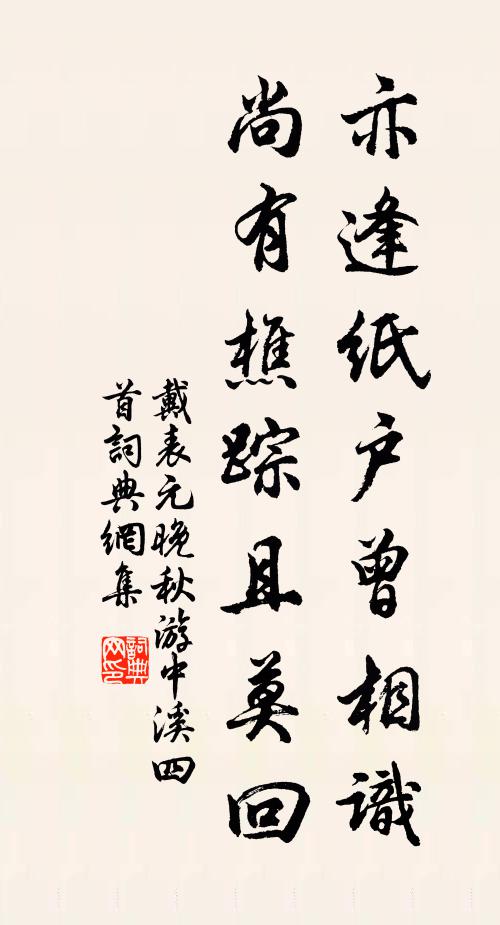 亦逢紙户曾相識
尚有樵踪且莫回
戴表元晚秋游中溪四
首詞典網集
詞典
网印